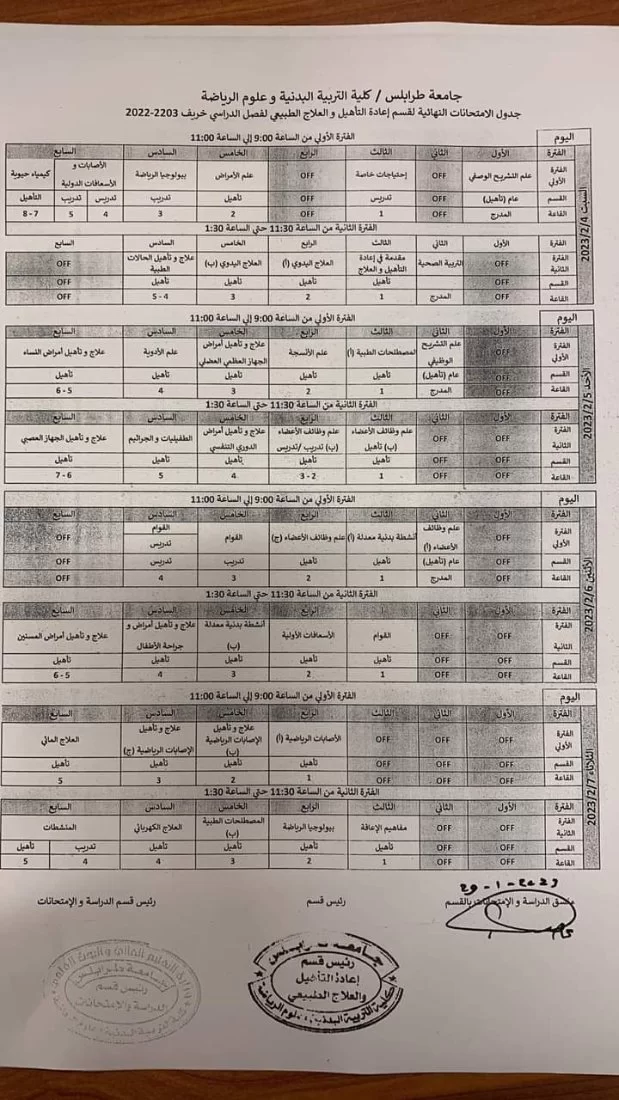 جامعة طرابلس / كلية التربية البدنية و علوم الرياضة
جدول الامتحانات النهائية لقسم إعادة التأهيل و العلاج الطبيعي لفصل الدراسي خريف 2203-2022
اليوم الفترة الأولي من الساعة 9:00 إلي الساعة 11:00
السبت 2023/2/4
الفترة الأول الثاني الثالث الرابع الخامس السادس السابع
الفترة الأولي علم التشريح الوصفي OFF إحتياجات خاصة OFF علم الأمراض بيولوجيا الرياضة الأصابات و الأسعافات الدولية كيمياء حيوية
القسم عام (تأهيل) OFF تدريس OFF تأهيل تدريب تدريس تدريب التأهيل
القاعة المدرج OFF 1 OFF 2 3 4 5 7 - 8
الفترة الثانية من الساعة 11:30 حتي الساعة 1:30
الفترة الأول الثاني الثالث الرابع الخامس السادس السابع
الفترة الثانية OFF التربية الصحية مقدمة في إعادة التأهيل و العلاج العلاج اليدوي (أ) العلاج اليدوي (ب) علاج و تأهيل الحالات الطبية OFF
القسم OFF تأهيل تأهيل تأهيل تأهيل OFF
القاعة OFF المدرج 1 2 3 4 - 5 OFF
اليوم الفترة الأولي من الساعة 9:00 إلي الساعة 11:00
الأحد 2023/2/5
الفترة الأول الثاني الثالث الرابع الخامس السادس السابع
الفترة الأولي OFF علم التشريح الوظيفي المصطلحات الطبية (أ) علم الأنسجة علاج و تأهيل أمراض الجهاز العظمي العضلي علم الأدوية علاج و تأهيل أمراض النساء
القسم OFF عام (تأهيل) تأهيل تأهيل تأهيل تأهيل تأهيل
القاعة OFF المدرج 1 2 3 4 5 - 6
الفترة الثانية من الساعة 11:30 حتي الساعة 1:30
الفترة الأول الثاني الثالث الرابع الخامس السادس السابع
الفترة الثانية OFF OFF علم وظائف الأعضاء (ب) تأهيل علم وظائف الأعضاء (ب) تدريب /تدريس علاج و تأهيل أمراض الدوري التنفسي الطفيليات و الجراثيم علاج و تأهيل الجهاز العصبي
القسم OFF OFF تأهيل تأهيل تأهيل تأهيل تأهيل
القاعة OFF OFF 1 2 - 3 4 5 6 - 7
اليوم الفترة الأولي من الساعة 9:00 إلي الساعة 11:00
الأثنين 2023/2/6
الفترة الأول الثاني الثالث الرابع الخامس السادس السابع
الفترة الأولي OFF علم وظائف الأعضاء (أ) أنشطة بدنية معدلة (أ) علم وظائف الأعضاء (ج) القوام القوام تدريس OFF
القسم OFF عام (تأهيل) تأهيل تأهيل تدريب تدريس OFF
القاعة OFF المدرج 1 2 3 4 OFF
الفترة الثانية من الساعة 11:30 حتي الساعة 1:30
الفترة الأول الثاني الثالث الرابع الخامس السادس السابع
الفترة الثانية OFF OFF القوام الأسعافات الأولية أنشطة بدنية معدلة (ب) علاج و تأهيل أمراض و جراحة الأطفال علاج و تأهيل أمراض المسنين
القسم OFF OFF تأهيل تأهيل تأهيل تأهيل تأهيل
القاعة OFF OFF 1 2 3 4 5 - 6
اليوم الفترة الأولي من الساعة 9:00 إلي الساعة 11:00
الثلاثاء 2023/2/7
الفترة الأول الثاني الثالث الرابع الخامس السادس السابع
الفترة الأولي OFF OFF OFF الأصابات الرياضية (أ) علاج و تأهيل الإصابات الرياضية (ب) علاج و تأهيل الإصابات الرياضية (ج) العلاج المائي
القسم OFF OFF OFF تأهيل تأهيل تأهيل تأهيل
القاعة OFF OFF OFF 1 2 3 5
الفترة الثانية من الساعة 11:30 حتي الساعة 1:30
الفترة الأول الثاني الثالث الرابع الخامس السادس السابع
الفترة الثانية OFF OFF مفاهيم الإعاقة بيولوجيا الرياضة المصطلحات الطبية (ب) العلاج الكهربائي المنشطات
القسم OFF OFF تأهيل تأهيل تأهيل تأهيل تدريب تأهيل
القاعة OFF OFF 1 2 3 4 4 5
29-1-2023
منسق الدراسة و الإمتحانات بالقسم رئيس قسم رئيس قسم الدراسة و الإمتحانات
جامعة طرابلس
رئيس قسم
إعادة التأهيل
والعلاج الطبيعي
كلية التربية البدنية وعلوم الرياضة
جامعة طرابلس
رئيس قسم
الدراسة والامتحانات